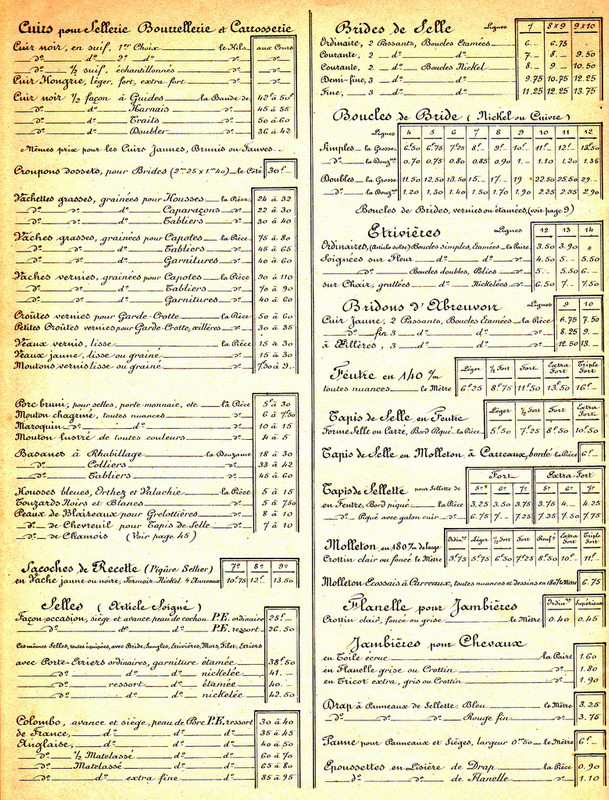 Cuirs pour Sellerie Bourrellerie et Carrosserie
Cuir noir, en suif, 1er Choix le Kilo aux Cours
do do 2e do
do 1/2 suif, échantillonnés
Cuir Hongrie, léger, fort, extra fort
Cuir noir 1/2 façon à Guides la Bande de 42 à 50
do Harnais 45 à 55
do Traits 50 à 60
do Doubler 36 à 42
Mêmes prix pour les Cuirs Jaunes, Brunis ou Fauves
Croupons dossets, pour Brides (2m25 x 1m40) le Coté 30f
Vachettes grasses, grainées pour Housses la Pièce 24 à 32
do do Caparaçons do 22 à 30
do do Tabliers do 30 à 40
Vaches grasses, grainées pour Capotes la Pièce 75 à 80
do do Tabliers do 45 à 65
do do Garnitures do 40 à 60
Vaches vernies, grainées pour Capotes la Pièce 90 à 110
do Tabliers do 70 à 90
do Garnitures do 40 à 60
Croûtes vernies pour Garde-Crotte la Pièce 50 à 60
Petites Croûtes vernies pour Garde-Crotte, œillères do 30 à 35
Veaux vernis, lisse la Pièce 15 à 30
Veaux jaune, lisse ou grainé do 15 à 30
Moutons vernis lisse ou grainé do 7.50 à 9
Porc bruni, pour selles, porte-monnaie, etc la Pièce 5 à 30
Mouton chagriné, toutes nuances do 6 à 7.50
Maroquin do do do 10 à 15
Mouton lustré de toutes couleurs do 4 à 5
Basanes à Rhabillage la Douzaine 18 à 30
do Colliers do 33 à 42
do Tabliers do 45 à 60
Housses bleues, Orthez et Valachie la Pièce 5 à 15
Touzards Noirs et Blancs do 5 à 7.50
Peaux de Blaireaux pour Grelottières do 8 à 10
do de Chevreuil pour Tapis de Selle do 7 à 10
do de Chamois (Voir page 45)
Sacoches de Recette (Piqûre Sellier) 7o 8o 9o
en Vache jaune ou noire, Fermoir Nickel & Anneaux 10.75 12f 13.50
Selles (Article Soigné)
Façon occasion, siège et avance, peau de cochon P.E. ordinaire 25f
do do do P.E. ressort 26.50
Les mêmes Selles, toutes équipées, avec Bride, Sangles, Etrivières, Mors, Filet, Etriers
avec Porte-Etriers ordinaires, garniture étamée 38f50
do do do nickelée 41
do ressort do étamée 40
do do do nickelée 42.50
Colombo, avance et siège, peau de Porc P.E. ressort 30 à 40
de France, do do do 35 à 45
Anglaise, do do do 40 à 50
do 1/2 Matelassé do do 60 à 70
do Matelassé do do 65 à 80
do do extra fine do 85 à 95
Brides de Selle Lignes 7 8x9 9x10
Ordinaire, 2 Passants, Boucles Etamées 6. 6.75
Courante, 2 do do 7. 8. 9.50
Courante, 2 do Boucles Nickel 8. 9. 10.50
Demi-fine, 3 do do 9.75 10.75 12.25
Fine, 3 do do 11.25 12.25 13.75
Boucles de Bride (Nickel ou Cuivre)
Lignes 4 5 6 7 8 9 10 11 12
Simples la Grosse 6f50 6.75 7.25 8f 9f 10f 11f 12f 13.50
do la Douzne 0.70 0.75 0.80 0.85 0.90 1. 1.10 1.20 1.35
Doubles la Grosse 11.50 12.50 13.50 15. 17. 19 22.50 25.50 29
do la Douzne 1.20 1.30 1.40 1.50 1.70 1.90 2.25 2.55 2.90
Boucles de Brides, vernies ou étamées (voir page 9)
Etrivières Lignes 12 13 14
Ordinaires (Article solde) Boucles simples, Etamées la Paire 3.50 3.90
Soignées sur Fleur do do do 4.50 5. 5.50
do Boucles doubles, Polies do 5. 5.50 6
sur Chair, grattées do Nickelées do 6.50 7. 7.50
Bridons d'Abreuvoir Lignes 9 10
Cuir Jaune, 2 Passants, Boucles Etamées la Pièce 6.75 7.50
do fin 3 do do do 8.25 9
à Œillères, 3 do do 12.50 13
Feutre en 140 c/m Léger 1/2 Fort Fort Extra Fort Triple Fort
toutes nuances le Mètre 6f25 8f75 11f50 13.50 16f
Tapis de Selle en Feutre Léger 1/2 Fort Fort Extra Fort
Forme Selle ou Carré, Bord Piqué la Pièce 5f50 7f25 8f50 10f50
Tapis de Selle en Molleton à Carreaux, bordé la Pièce 6f
Fort Extra-Fort
Tapis de Sellette pour Sellettes de 5o 6o 7o 5o 6o 7o
en Feutre, Bord piqué la Pièce 3.25 3.50 3.75 3.75 4. 4.25
do Piqué avec galon cuir do 6.75 7. 7.25 7.25 7.50 7.75
Molleton en 180 c/m de large Ordinre Léger 1/2 Fort Fort Renfé Extra Fort Triple Fort
Crottin clair ou foncé le Mètre 3f75 5f75 6f50 7f25 8f50 10f 11f
Molleton Ecossais à Carreaux, toutes nuances et dessins en 130 c/m le Mètre 6.75
Flanelle pour Jambières Ordinre Supérieure
Crottin clair, foncé ou grise le Mètre 0.40 0.45
Jambières pour Chevaux
en Toile écrue la Paire 1.60
en Flanelle grise ou Crottin do 1.80
en Tricot extra, gris ou Crottin do 1.90
Drap à Panneaux de Sellette, Bleu le Mètre 3.25
do do do Rouge fin do 3.75
Panne pour Panneaux et Sièges, largeur 0m50 le Mètre 6f
Epoussettes en Lisière de Drap la Pièce 0.90
do do de Flanelle do 1.10